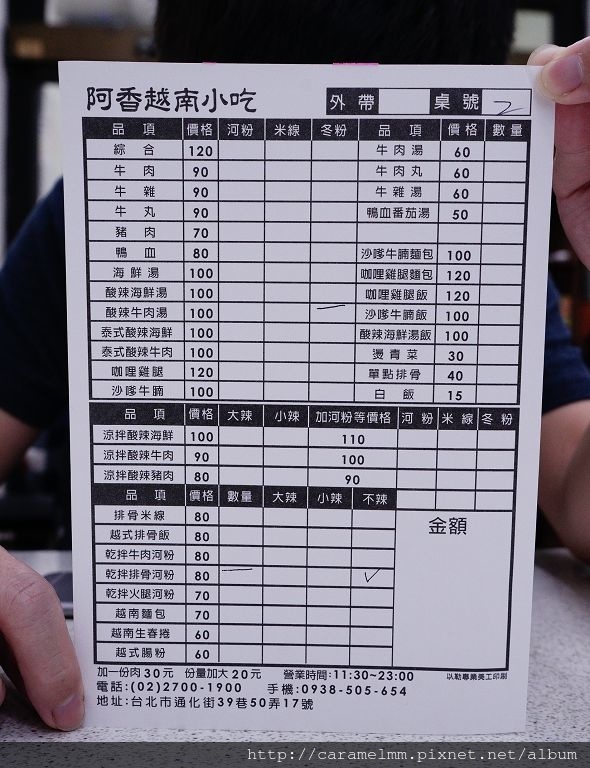 阿香越南小吃 外帶 桌號 2
品項 價格 河粉 米線 冬粉 品項 價格 數量
綜合 120 牛肉湯 60
牛肉 90 牛肉丸 60
牛雜 90 牛雜湯 60
牛丸 90 鴨血番茄湯 50
豬肉 70
鴨血 80 沙嗲牛腩麵包 100
海鮮湯 100 咖哩雞腿麵包 120
酸辣海鮮湯 100 咖哩雞腿飯 120
酸辣牛肉湯 100 一 沙嗲牛腩飯 100
泰式酸辣海鮮 100 酸辣海鮮湯飯 100
泰式酸辣牛肉 100 燙青菜 30
咖哩雞腿 120 單點排骨 40
沙嗲牛腩 100 白飯 15
品項 價格 大辣 小辣 加河粉等價格 河粉 米線 冬粉
涼拌酸辣海鮮 100 110
涼拌酸辣牛肉 90 100
涼拌酸辣豬肉 80 90
品項 價格 數量 大辣 小辣 不辣 金額
排骨米線 80
越式排骨飯 80
乾拌牛肉河粉 80
乾拌排骨河粉 80 一 ✓
乾拌火腿河粉 70
越南麵包 70
越南生春捲 60
越式腸粉 60
加一份肉30元 份量加大20元 營業時間:11:30~23:00 以勒專業美工印刷
電話:(02)2700-1900 手機:0938-505-654
地址:台北市通化街39巷50弄17號
http://caramelmm.pixnet.net/album